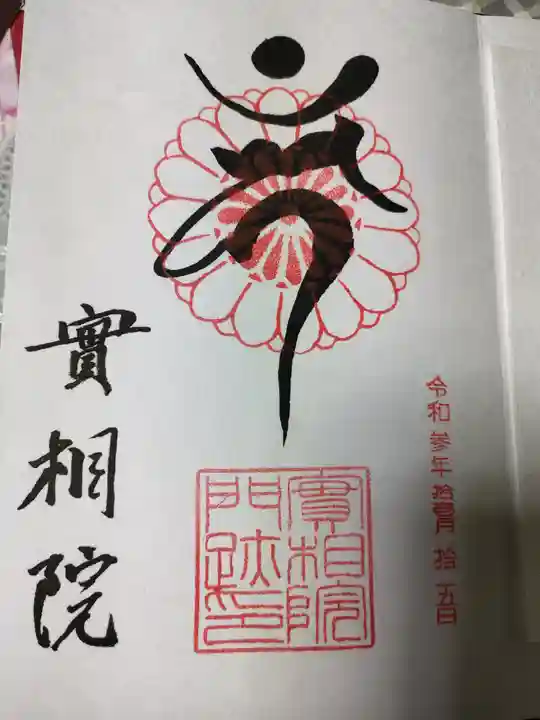 令和参年拾壹月拾五日
實相院
門跡印
實相院